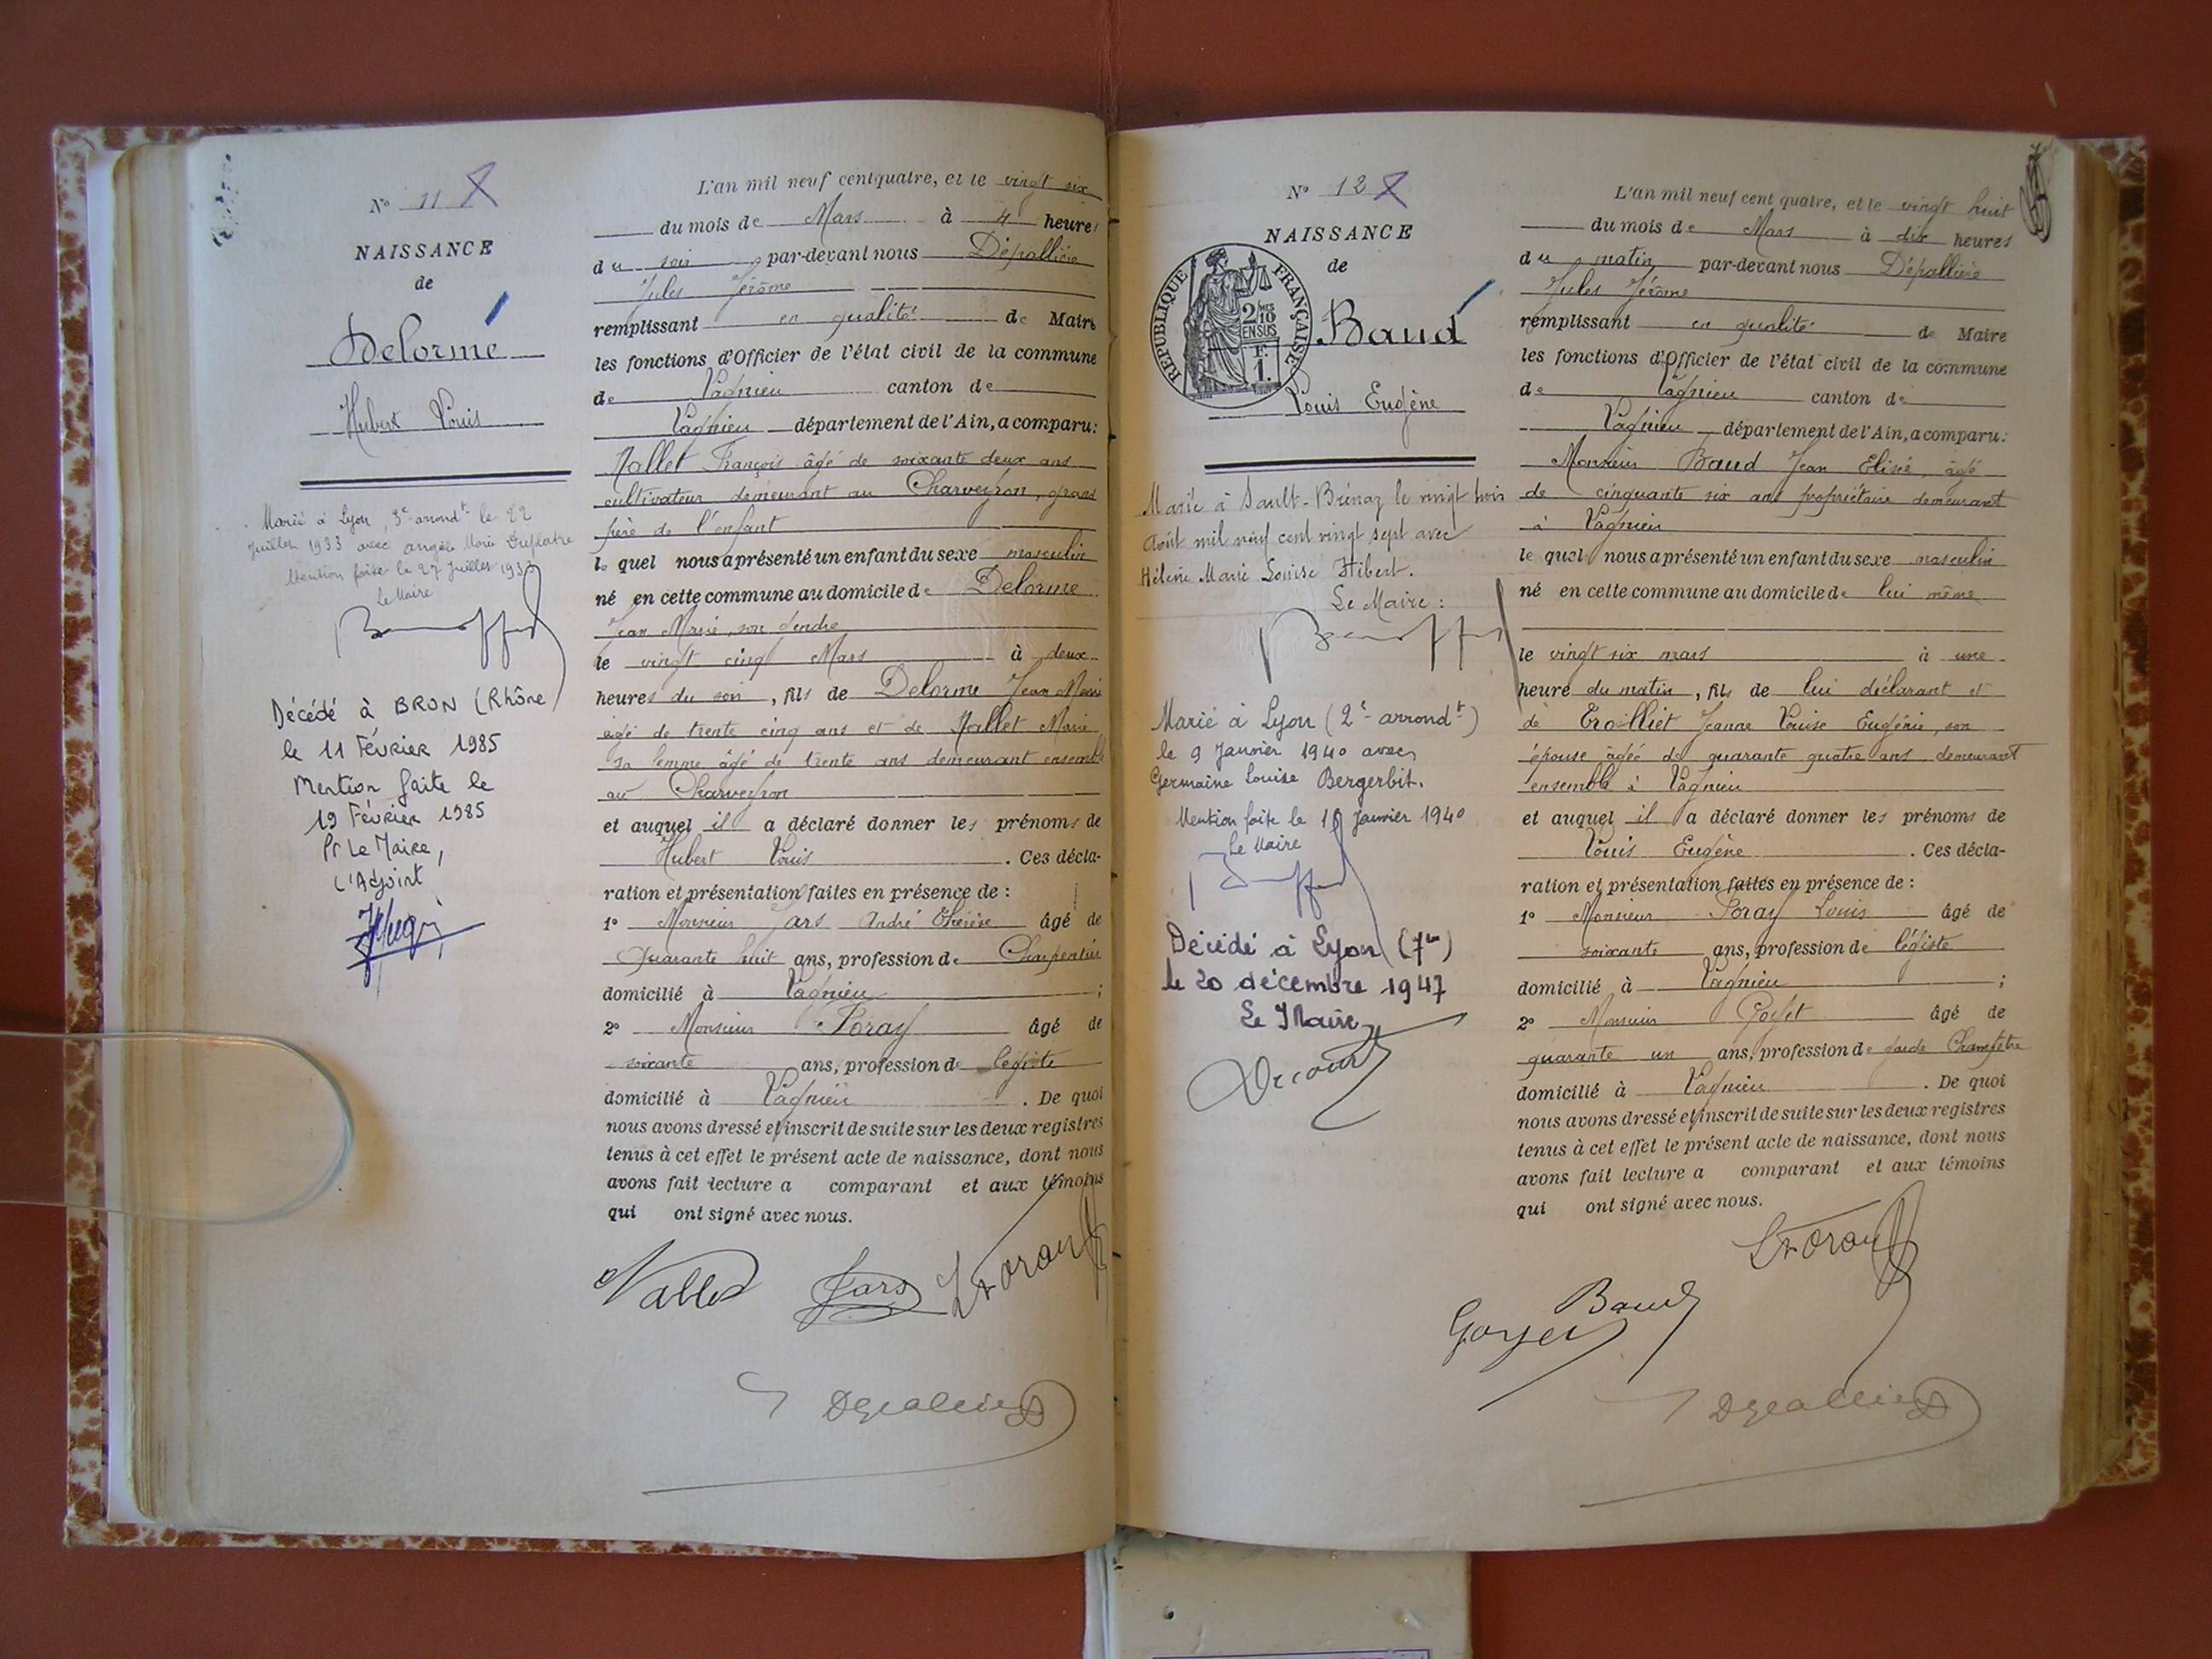 N° 11
NAISSANCE
de
Delorme
Hubert Louis
Marié à Lyon, 3e arrondt le 22
Juillet 1933 avec Angèle Marie
Mention faite le 27 Juillet 1933
Le Maire
Décédé à BRON (Rhône)
le 11 Février 1985
Mention faite le
19 Février 1985
Pr Le Maire,
L'Adjoint
L'an mil neuf cent quatre, et le vingt six
du mois de Mars à 4 heures
du soir par-devant nous Dépallière
Jules Jérôme
remplissant en qualité de Maire
les fonctions d'Officier de l'état civil de la commune
de Lagnieu canton de
Lagnieu département de l'Ain, a comparu:
Nallet François âgé de soixante deux ans
cultivateur demeurant au Charveyron, grand
père de l'enfant
lequel nous a présenté un enfant du sexe masculin
né en cette commune au domicile de Delorme
Jean Marie, son gendre
le vingt cinq Mars à deux
heures du soir, fils de Delorme Jean Marie
âgé de trente cinq ans et de Nallet Marie
sa femme âgé de trente ans demeurant ensemble
au Charveyron
et auquel il a déclaré donner les prénoms de
Hubert Louis. Ces décla-
ration et présentation faites en présence de:
1° Monsieur Jars André Thérèse âgé de
Quarante huit ans, profession de Charpentier
domicilié à Lagnieu;
2° Monsieur Poray âgé de
soixante ans, profession de légiste
domicilié à Lagnieu. De quoi
nous avons dressé et inscrit de suite sur les deux registres
tenus à cet effet le présent acte de naissance, dont nous
avons fait lecture a comparant et aux témoins
qui ont signé avec nous.
Nallet Jars
N° 12
NAISSANCE
de
REPUBLIQUE FRANÇAISE
2 10
EN SUS
F.
1.
Baud
Louis Eugène
Marié à Sault-Brénaz le vingt trois
Août mil neuf cent vingt sept avec
Hélène Marie Louise Hibert.
Le Maire:
Marié à Lyon (2e arrondt)
le 9 Janvier 1940 avec
Germaine Louise Bergerbit.
Mention faite le Janvier 1940
Le Maire
Décédé à Lyon (7me)
le 20 décembre 1947
Le Maire
L'an mil neuf cent quatre, et le vingt huit
du mois de Mars à dix heures
du matin par-devant nous Dépallière
Jules Jérôme
remplissant en qualité de Maire
les fonctions d'Officier de l'état civil de la commune
de Lagnieu canton de
Lagnieu département de l'Ain, a comparu:
Monsieur Baud Jean Elisé, âgé
de cinquante six ans propriétaire demeurant
à Lagnieu
lequel nous a présenté un enfant du sexe masculin
né en cette commune au domicile de lui même
le vingt six mars à une
heure du matin, fils de lui déclarant et
de Trolliet Jeanne Louise Eugénie, son
épouse âgée de quarante quatre ans demeurant
ensemble à Lagnieu
et auquel il a déclaré donner les prénoms de
Louis Eugène. Ces décla-
ration et présentation faites en présence de:
1° Monsieur Poray Louis âgé de
soixante ans, profession de légiste
domicilié à Lagnieu;
2° Monsieur Goyet âgé de
quarante un ans, profession de garde Champêtre
domicilié à Lagnieu. De quoi
nous avons dressé et inscrit de suite sur les deux registres
tenus à cet effet le présent acte de naissance, dont nous
avons fait lecture a comparant et aux témoins
qui ont signé avec nous.
Baud
Goyet